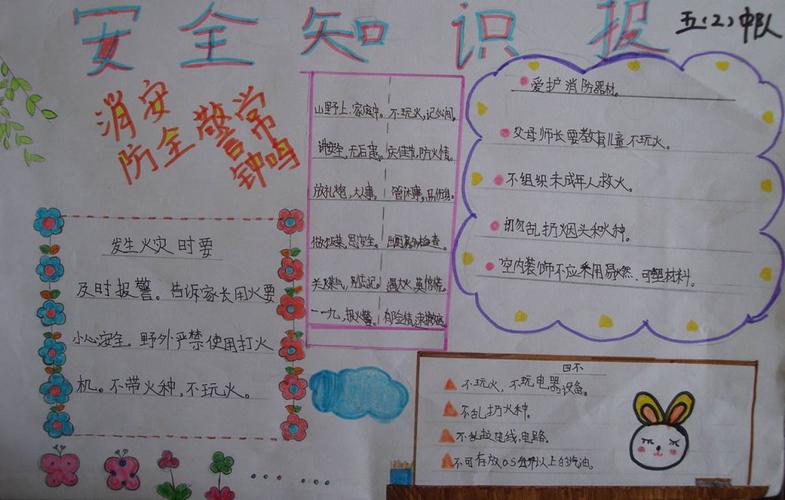 安全知识报
五(2)中队
消防安全
警钟常鸣
发生火灾时要
及时报警。告诉家长用火要
小心安全。野外严禁使用打火
机。不带火种,不玩火。
山野上,家庭中,不玩火,记心间。
讲安全,无后患。庆佳节,防火情。
放礼炮,
做饭菜,思安全。
关煤气,
遇大火,莫慌张。
一一九,报火警。
爱护消防器材。
父母师长要教育儿童不玩火。
不组织未成年人救火。
切勿乱扔烟头和火种。
室内装饰不应采用易燃、可塑材料。
四不
不玩火,不玩电器设备。
不乱扔火种。
不乱拉建线电路。
不可存放0.5公斤以上的汽油。